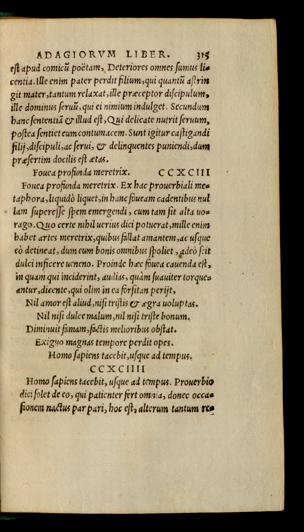 ADAGIORVM LIBER. 315
est apud comicũ poëtam, Deteriores omnes sumus li=
centia. Ille enim pater perdit filium, qui quantũ astrin
git mater, tantum relaxat, ille præceptor discipulum,
ille dominus seruũ, qui ei nimium indulget. Secundum
hanc sententiã & illud est, Qui delicate nutrit seruum,
postea sentiet eum contumacem. Sunt igitur castigandi
filij, discipuli, ac serui, & delinquentes puniendi, dum
præsertim docilis est ætas.
Fouea profunda meretrix. CCXCIII
Fouea profunda meretrix. Ex hac prouerbiali me=
taphora, liquidò liquet, in hanc foueam cadentibus nul
lam superesse spem emergendi, cum tam sit alta uo=
rago. Quo certe nihil uerius dici potuerat, mille enim
habet artes meretrix, quibus fallat amantem, ac usque
eò detineat, dum eum bonis omnibus spoliet, adeò scit
dulci inficere ueneno. Proinde hæc fouea cauenda est,
in quam qui inciderint, audias, quàm suauiter torque=
antur, dicente, qui olim in ea forsitan perijt,
Nil amor est aliud, nisi tristis & ægra uoluptas.
Nil nisi dulce malum, nil nisi triste bonum.
Diminuit famam, factis melioribus obstat.
Exiguo magnas tempore perdit opes.
Homo sapiens tacebit, usque ad tempus.
CCXCIIII
Homo sapiens tacebit, usque ad tempus. Prouerbio
dici solet de eo, qui patienter fert omnia, donec occa=
sionem nactus par pari, hoc est, alterum tantum re=